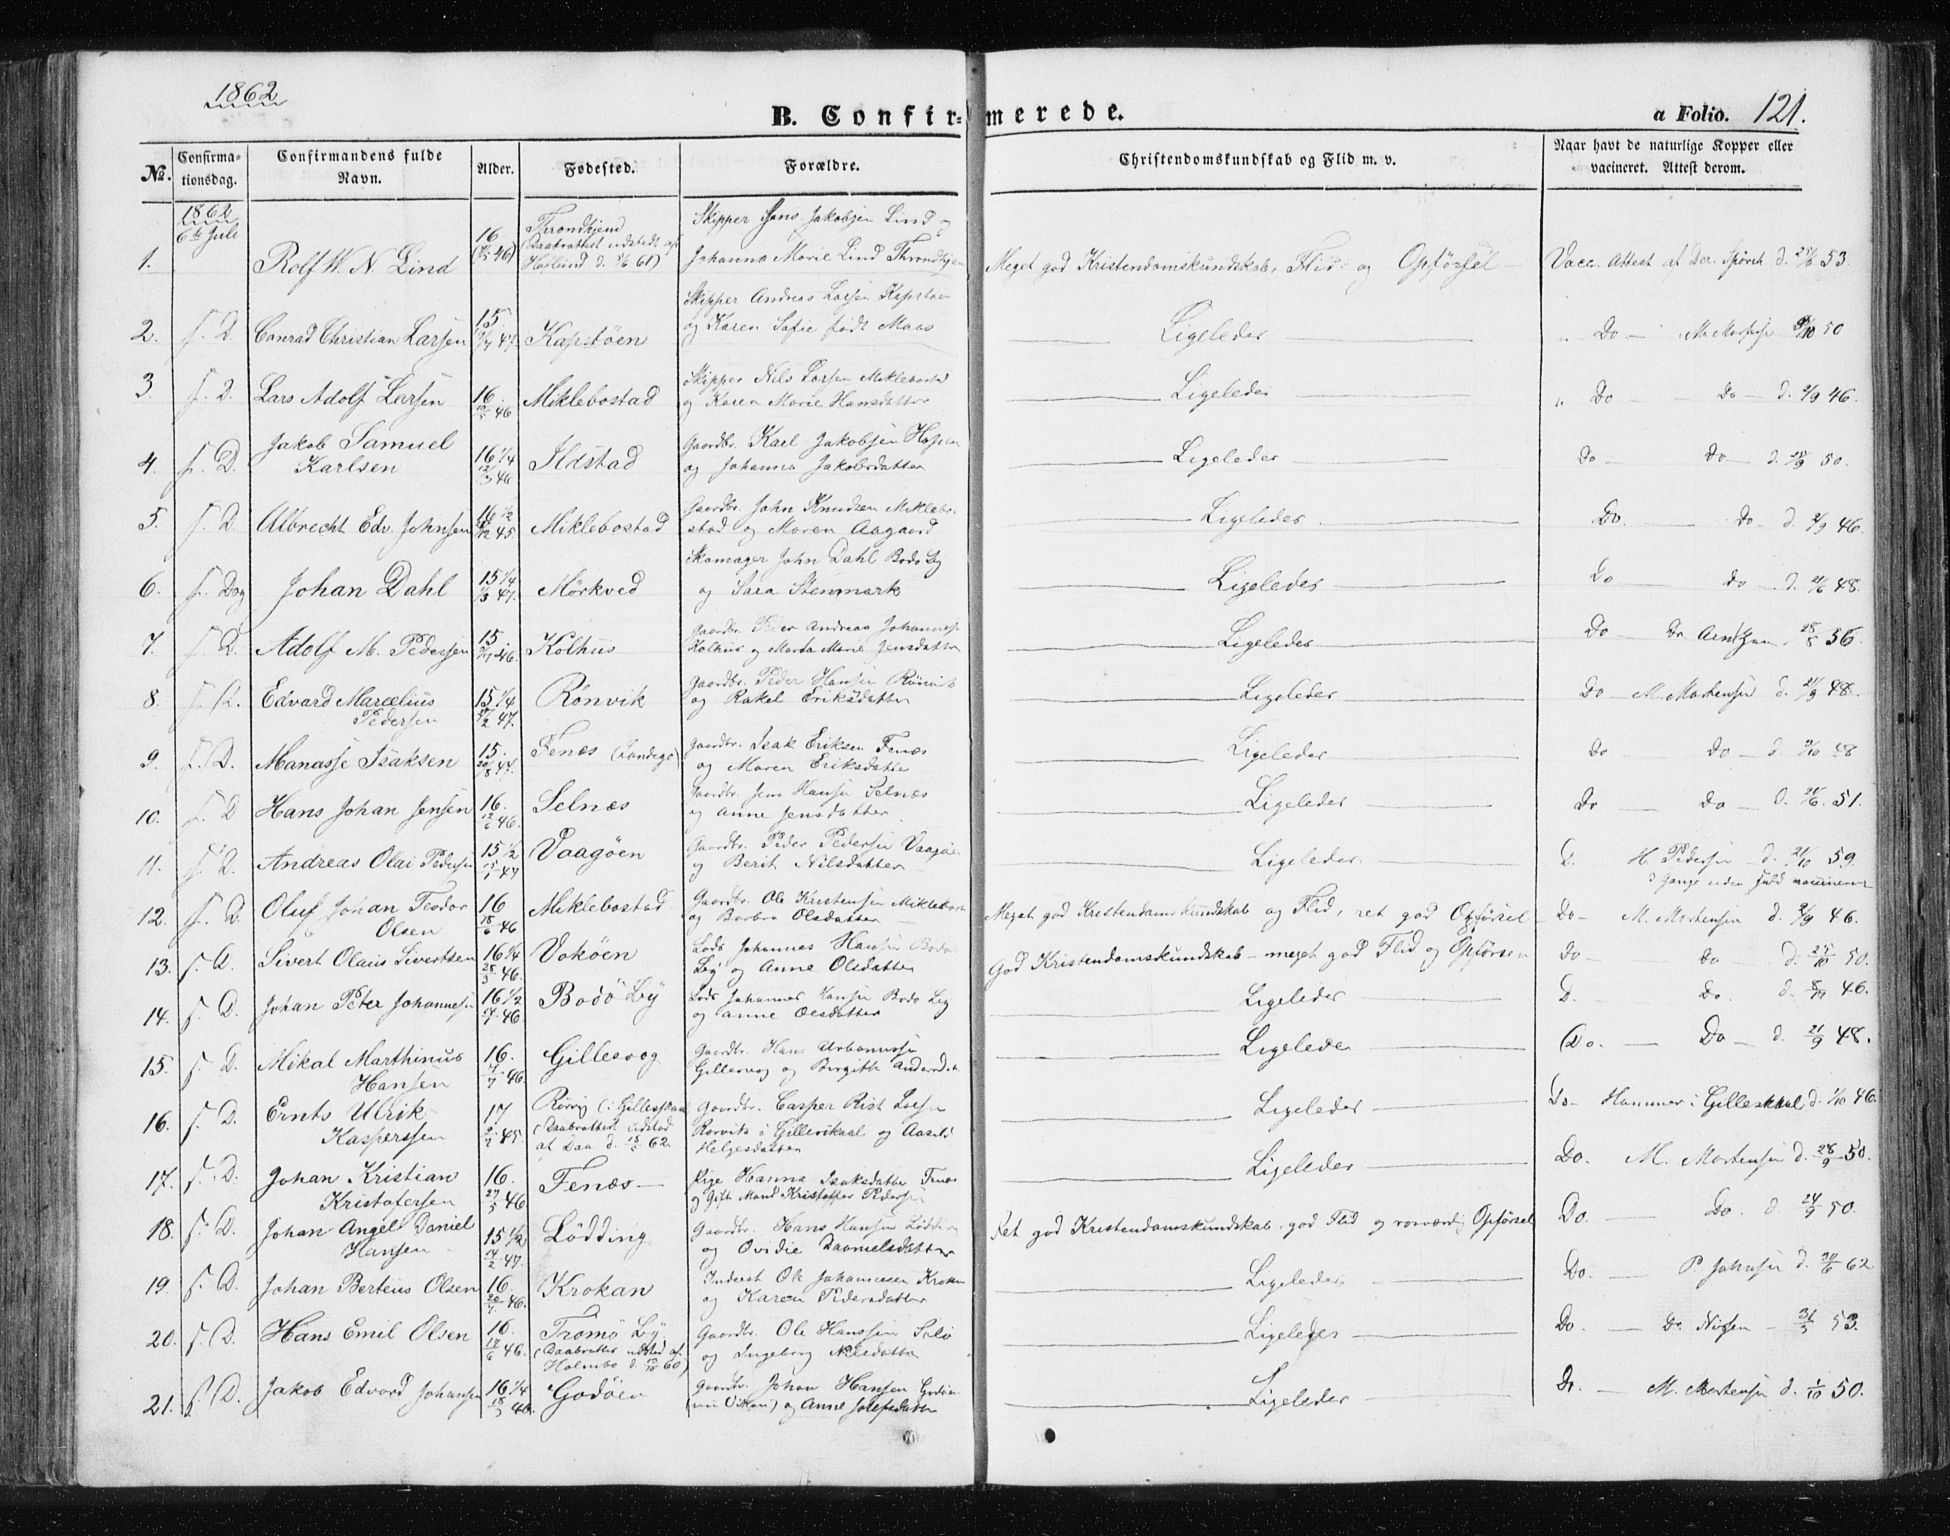 1862
B. Confirmerede.
a Folio. 121.
№. Confirmationsdag. Confirmandens fulde Navn. Alder. Fødested. Forældre. Christendomskundskab og Flid m. v. Naar havt de naturlige Kopper eller vacineret. Attest derom.
1862
6te Juli
1. Rolf W. N. Lind 16 Throndhjem Skipper Hans Jakobsen Lind og Johanna Marie Lind Throndhjem Meget god Kristendomskundskab, Flid og Opførsel Vacc. Attest af 53.
2. s. D. Conrad Christian Larsen 15 47. Kapstøen Skipper Andreas Larsen Kapstøen og Karen Sofie født Maas Ligeledes Do 50
3. s. D. Lars Adolf Larsen 16. 46 Miklebostad Skipper Nils Larsen Miklebostad og Karen Marie Hansdatter Ligeledes Do Do d. 2/9 46.
4. s. D. Jakob Samuel Karlsen 16 1/4 12/3 46 Ildstad Gaardbr. Karl Jakobsen og Johanna Jakobsdatter Ligeledes Do Do 50.
5. s. D. Albrecht Edv. Johnsen 16 1/2 45. Miklebostad Gaardbr. John Knudsen Miklebostad og Maren Aagaard Ligeledes Do. Do d. 2/9 46.
6. s. Dag Johan Dahl 15 1/4 47. Mørkved Skomager John Dahl Bodø By og Sara Stenmark Ligeledes Do do d. 21/6 48.
7. s. D. Adolf M. Pedersen 15. 46. Kolhus Gaardbr. Peder Andreas Johannes. Kolhus og Marta Marie Jensdatter Ligeledes Do Dr Arntzen 28/8 56.
8. s. D. Edvard Marcelius Pedersen 15 1/4 47. Rønvik Gaardbr. Peder Hansen Rønvik og Rakel Eriksdatter Ligeledes Do M. Mortensen d. 21/9 48.
9. s. D. Manasse Isaksen 15. 20/8 47. Fenæs (Landegø) Gaardbr. Isak Eriksen Fenæs og Maren Eriksdatte Ligeledes Do Do d. 9/10 48
10. s. D Hans Johan Jensen 16. 12/6 46. Selnæs Gaardbr. Jens Hansen Selnæs og Anne Jensdatter. Ligeledes Do do d. 21/6. 51.
11. s. D. Andreas Olai Pedersen 15 1/2 47 Vaagøen Gaardbr. Peder Pedersen Vaagøen og Berit Nilsdatter Ligeledes D. H. Pedersen d. 21/10 59.
3 Gange uden
12. s. D Oluf Johan Teodor Olsen 16 18/6 46 Miklebostad Gaardbr. Ole Kristensen Miklebost og Barbro Olsdatter Meget god Kristendomskundskab og Flid, ret god Opførsel Do- M. Mortensen d. 2/9 46.
13. s. D. Sivert Olaus Sivertsen 16 1/4 28/3 46. Vokøen Lods Johannes Hansen Bodø By og Anne Olsdatter God Kristendomskundskab - meget god Flid og Opførsen Do- Do d. 25/10 50.
14. s. D. Johan Peter Johannesen 16 1/2 17/1 46. Bodø By Lods Johannes Hansen Bodø By og Anne Olsdatter Ligeledes D. Do. d. 8/11 46.
15. s. D. Mikal Marthinus Hansen 16. 7/7 46. Gillesvog Gaardbr. Hans Gillesvog og Birgitte Andersdat Ligeledes Do. Do d. 21/9 48.
16. s. D. Ernts Ulrik Kasperssen 17 45. Rørvig (i Gilleskaal (Daabsattest udstæd af Daa d. 18/5 62. Gaardbr. Casper Rist Larsen Rørvik i Gilleskaal og Aasild Helgesdatter Ligeledes Do- Hammer i Gilleskaal d. 1/10 46.
17. s. D. Johan Kristian Kristofersen 16. 27/5 46 Fenæs Pige Hanna Isaksdatter Fenæs og Gift Mand Kristoffer Pedersen Ligeledes Do. M. Mortensen d. 28/9 50.
18. s. D. Johan Angel Daniel Hansen 15 1/2 14/2 47. Lødding Gaardbr. Hans Hansen Lødding og Ovidie Danielsdatter Ret god Kristendomskundskab, god Flid og rosværdig Opførsel Do. Do. d 24/9 50.
19. s. D. Johan Berteus Olsen 16. 20/7 46. Krokan Inderst Ole Johannesen Krokan og Karen Pedersdatter Ligeledes Do. P. Johnsen d. 30/6 62
20. s. D. Hans Emil Olsen 16. 17/6 46. Tromø By (Daabsatter udstæd af Holmbo d. 60) Gaardbr. Ole Hanssen og Ingeborg Nilsdatter Ligeledes Do. Dr. 31/5 53.
21. s. D. Jakob Edvard Johansen 16 1/4 18/3 46. Godøen Gaardbr. Johan Hansen Godøen og Anne Josefsdatter Ligeledes Dr. M. Mortensen d. 1/10 50.